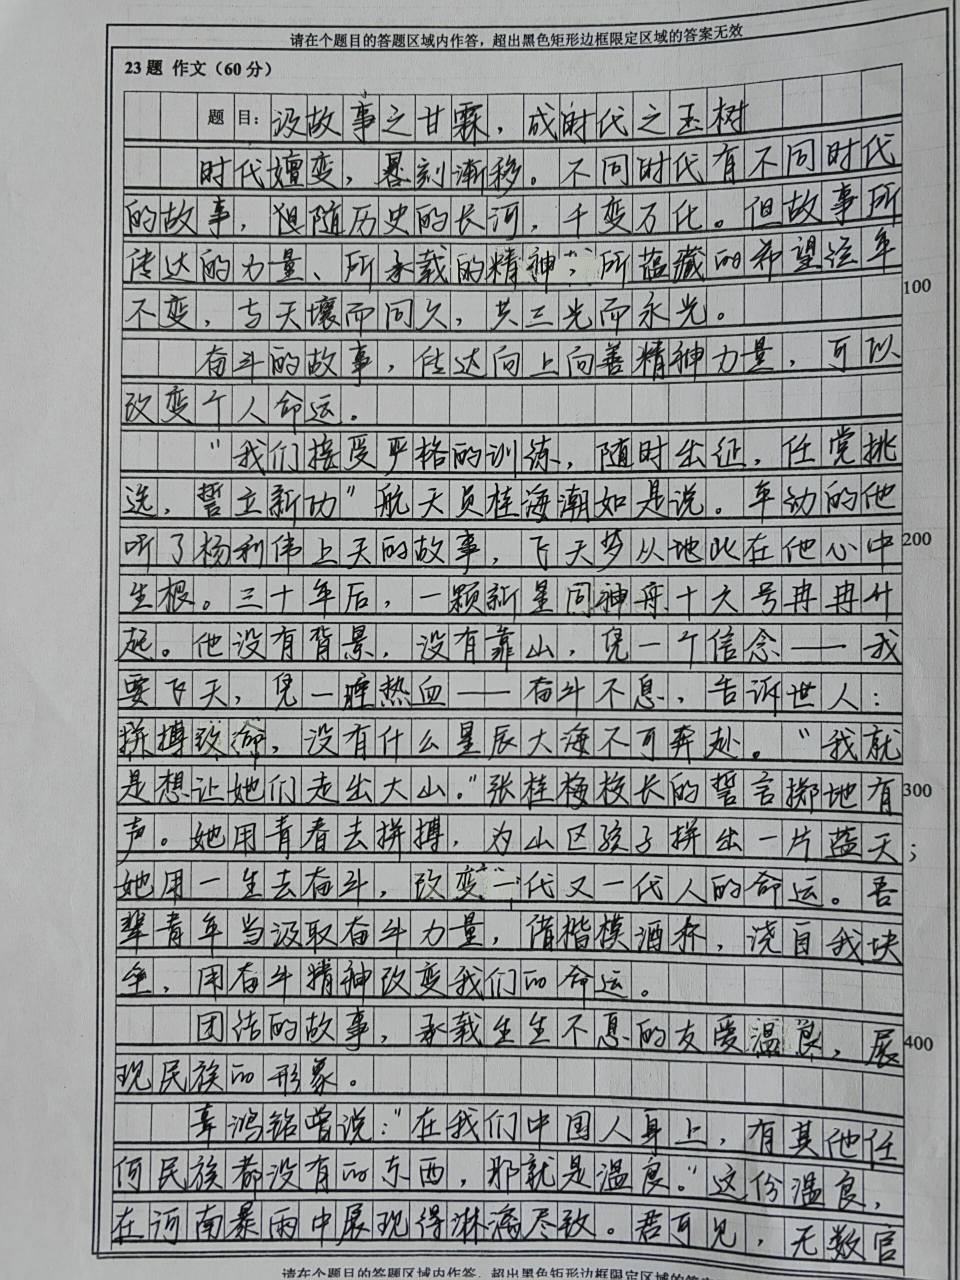 请在个题目的答题区域内作答，超出黑色矩形边框限定区域的答案无效
23题 作文（60分）
题目：汲故事之甘霖，成时代之玉树
时代嬗变，晷刻渐移。不同时代有不同时代
的故事，但随历史的长河，千变万化。但故事所
传达的力量、所承载的精神、所蕴藏的希望经年
100
不变，与天壤而同久，共三光而永光。
奋斗的故事，传达向上向善精神力量，可以
改变个人命运。
"我们接受严格的训练，随时出征，任党挑
选，誓立新功"航天员桂海潮如是说。年幼的他
听了杨利伟上天的故事，飞天梦从地此在他心中
200
生根。三十年后，一颗新星同神舟十六号冉冉升
起。他没有背景，没有靠山，凭一个信念——我
要飞天，凭一腔热血——奋斗不息，告诉世人：
拼搏致命，没有什么星辰大海不可奔赴。"我就
是想让她们走出大山。"张桂梅校长的誓言掷地有
300
声。她用青春去拼搏，为山区孩子拼出一片蓝天；
她用一生去奋斗，改变一代又一代人的命运。吾
辈青年当汲取奋斗力量，借楷模酒杯，浇自我块
垒，用奋斗精神改变我们的命运。
团结的故事，承载生生不息的友爱温良，展
400
现民族的形象。
辜鸿铭曾说："在我们中国人身上，有其他任
何民族都没有的东西，那就是温良。"这份温良，
在河南暴雨中展现得淋漓尽致。君可见，无数官
请在个题目的答题区域内作答，超出黑色矩形边框限定区域的答案